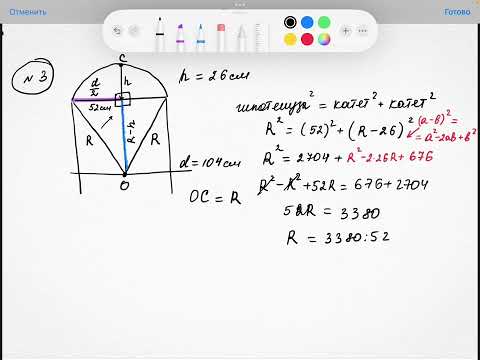 Отменить
Готово
№ 3
C
d/2
h
52см
R
R-h
R
O
h = 26 см
d = 104 см
OC = R
гипотенуза² = катет² + катет²
R² = (52)² + (R-26)²
(a-b)² =
= a²-2ab+b²
R² = 2704 + R²-2·26R + 676
R² - R² + 52R = 676 + 2704
52R = 3380
R = 3380:52